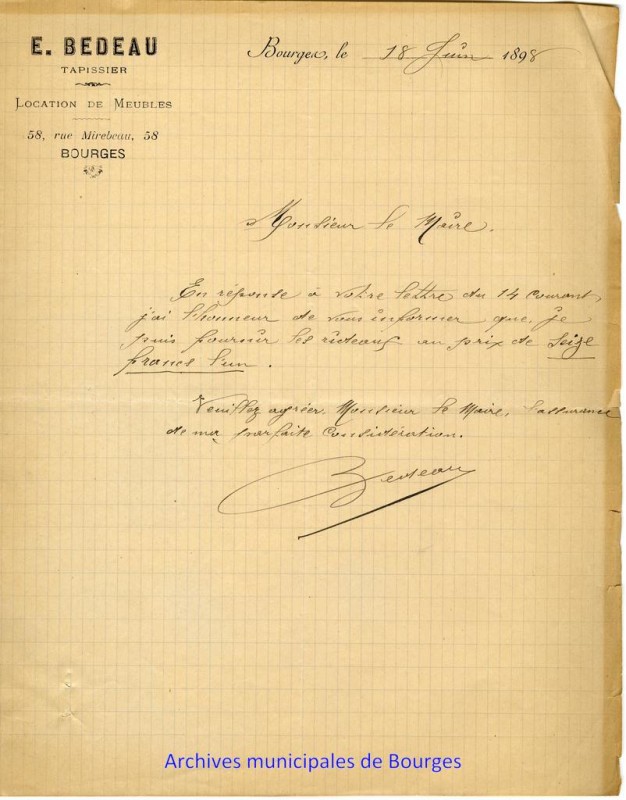 E. BEDEAU
TAPISSIER
LOCATION DE MEUBLES
58, rue Mirebeau, 58
BOURGES
Bourges, le 18 Juin 1898
Monsieur le Maire.
En réponse à votre lettre du 14 courant,
j'ai l'honneur de vous informer que je
puis fournir les rideaux au prix de seize
francs l'un.
Veuillez agréer, Monsieur le Maire, l'assurance
de ma parfaite considération.
Bedeau
Archives municipales de Bourges